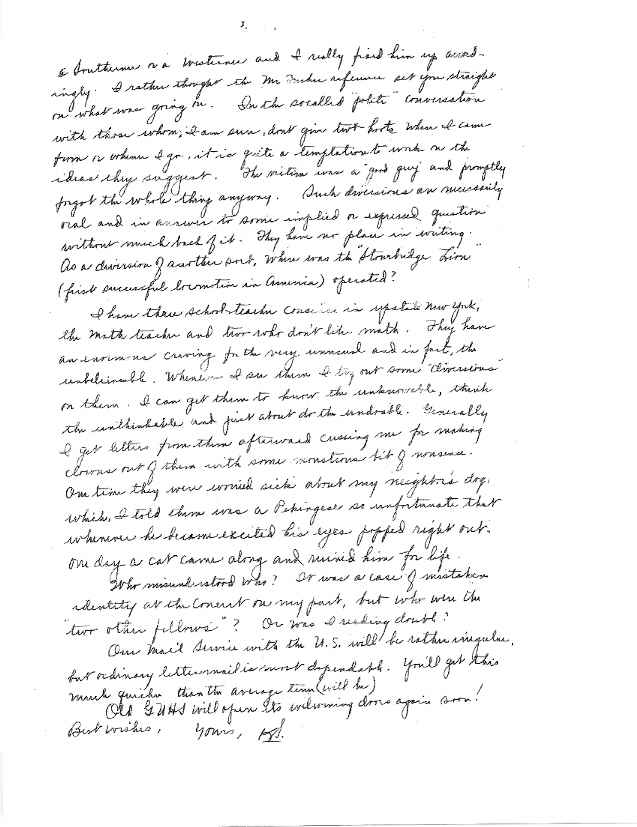 2.
a Southerner or a Westerner and I really fixed him up accord-
ingly. I rather thought the Mr. reference set you straight
on what was going on. In the socalled "polite" conversation
with those whom, I am sure, dont give two hoots where I came
from or where I go, it is quite a temptation to work on the
ideas they suggest. The victim was a "good guy" and promptly
forgot the whole thing anyway. Such diversions are necessarily
oral and in answer to some implied or expressed question
without much back of it. They have no place in writing.
As a diversion of another sort, where was the "Stourbridge Lion"
(first successful locomotive in America) operated?
I have three school-teacher cousins in upstate New York,
the math teacher and two who don't like math. They have
an enormous craving for the very unusual and in fact, the
unbelievable. Whenever I see them I try out some "diversions"
on them. I can get them to know the unknowable, think
the unthinkable and just about do the undoable. Generally
I get letters from them afterward cussing me for making
clowns out of them with some monstrous bit of nonsense.
One time they were worried sick about my neighbor's dog,
which, I told them was a Pekingese so unfortunate that
whenever he became excited his eyes popped right out.
One day a cat came along and ruined him for life.
Who misunderstood who? It was a case of mistaken
identity at the Concert on my part, but who were the
"two other fellows"? Or was I seeing double?
Our mail service with the U.S. will be rather irregular,
but ordinary letter-mail is most dependable. You'll get this
much quicker than the average term (will be)
Old GUHS will open its welcoming doors again soon!
Best wishes, Yours,